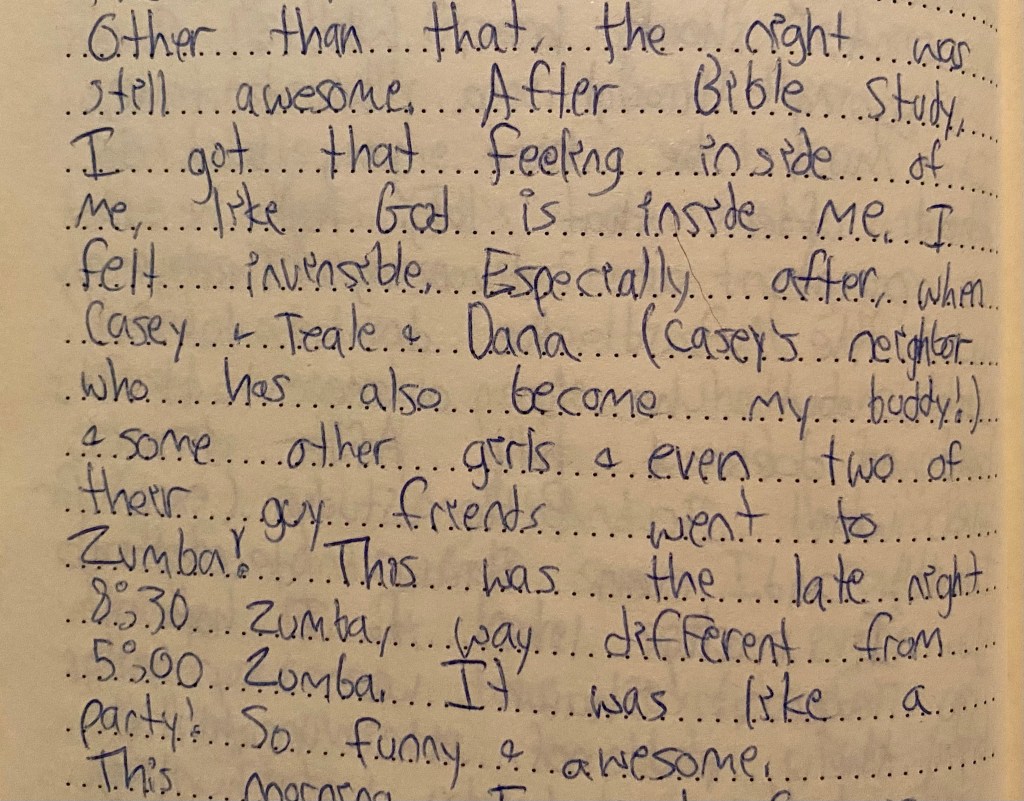 Other than that, the night was
still awesome. After Bible Study,
I got that feeling inside of
me, like God is inside me. I
felt invensible. Especially after, when
Casey & Teale & Dana (Casey's neighbor
who has also become my buddy!)
& some other girls & even two of
their guy friends went to
Zumba! This was the late night
8:30 Zumba, way different from
5:00 Zumba. It was like a
party! So funny & awesome.
This morning I